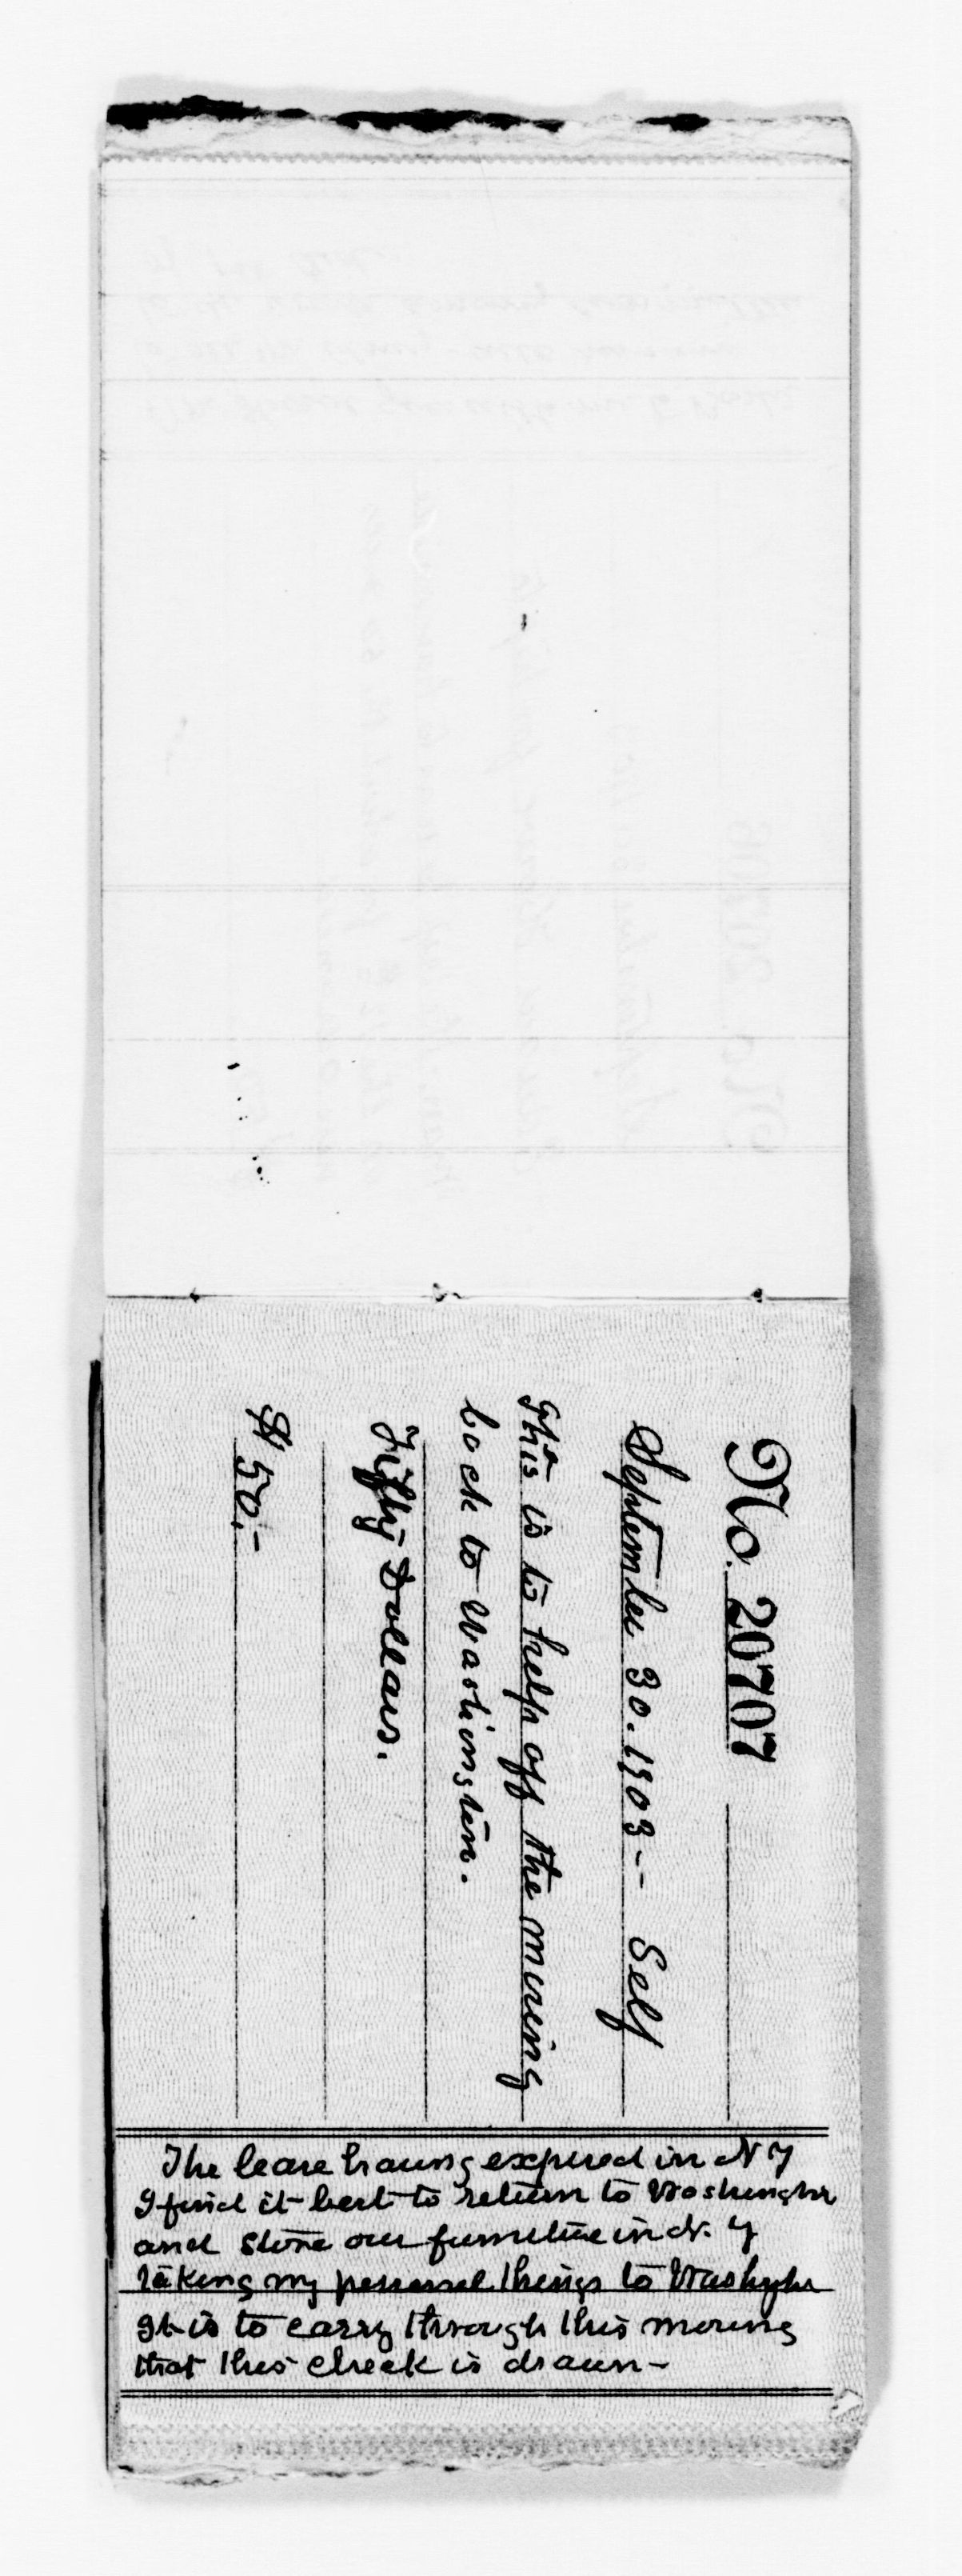 No. 20707
September 30. 1903 -- Self
This is to help off the moving
back to Washington.
Fifty Dollars.
$ 50.-
The lease having expired in N Y
I find it best to return to Washington
and store our furniture in N. Y
taking my personal things to Washington
It is to carry through this moving
that this check is drawn -